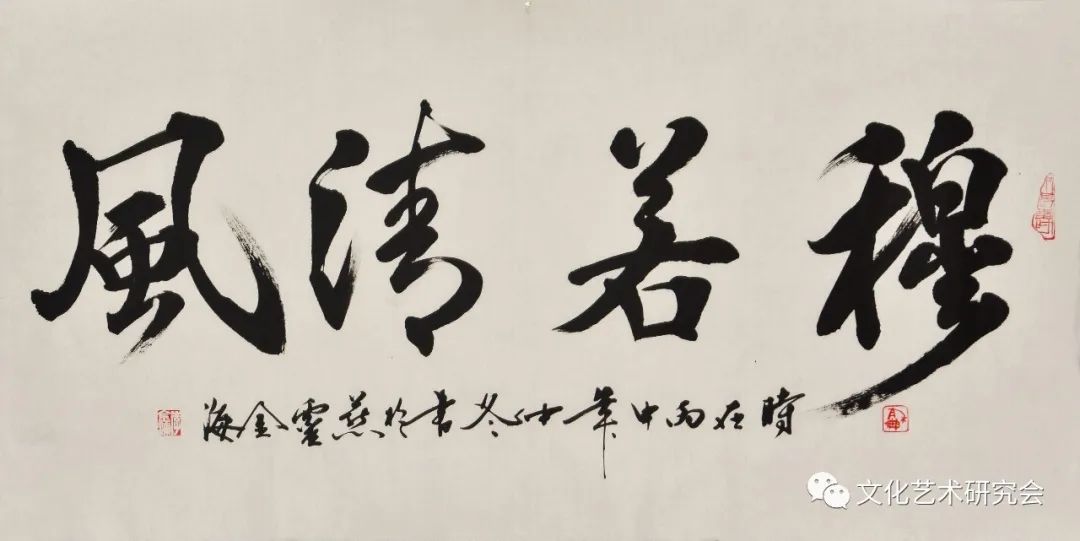 穆若清風
時在丙申年冬書於燕金海
文化艺术研究会